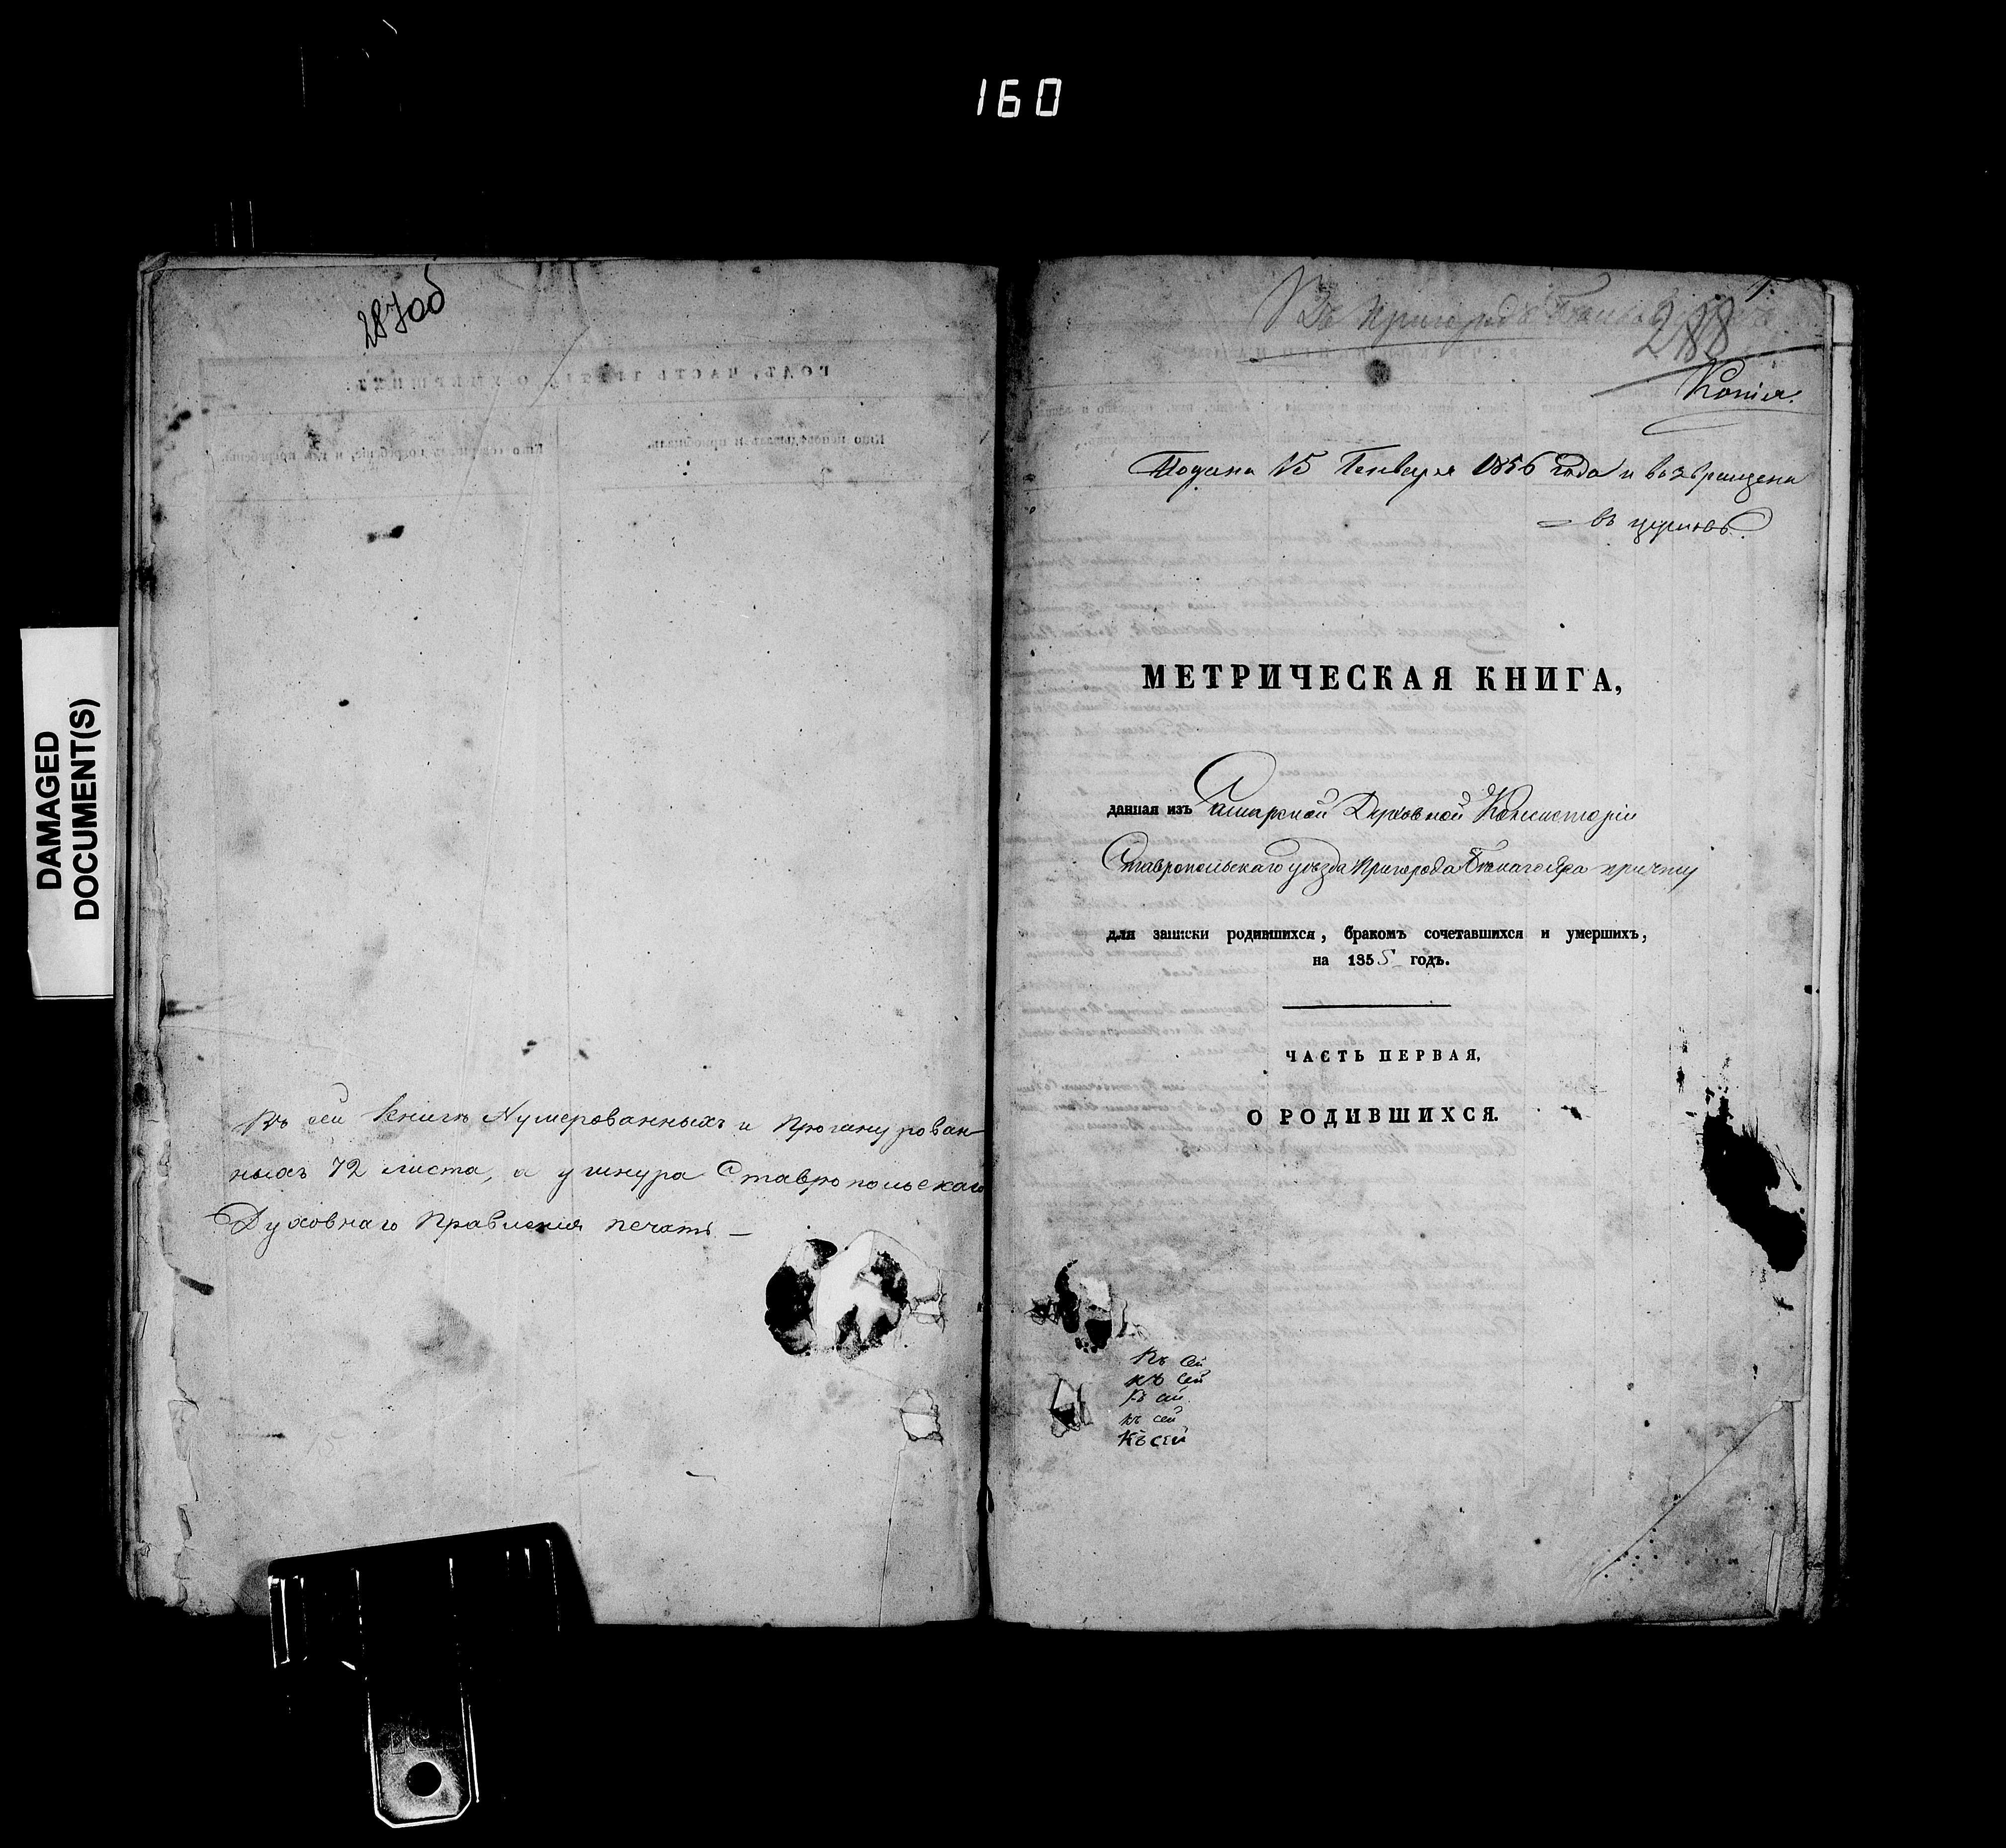 160
DAMAGED
DOCUMENT(S)
287об
Въ сей Книгѣ Нумерованныхъ и Прошнурован-
ныхъ 72 листа, а у шнура Ставропольскаго
Духовнаго Правленія печать —
Въ Пригородѣ
288
Копія.
Подана 15 Генваря 1856 года и возвращена
= въ церковь.
МЕТРИЧЕСКАЯ КНИГА,
данная изъ Самарской Духовной Консисторіи
Ставропольскаго уѣзда Пригорода Бѣлаго Яра причту
для записки родившихся, бракомъ сочетавшихся и умершихъ,
на 1855 годъ.
ЧАСТЬ ПЕРВАЯ,
О РОДИВШИХСЯ.
Къ сей
къ сей
Къ сей
къ сей
Къ сей